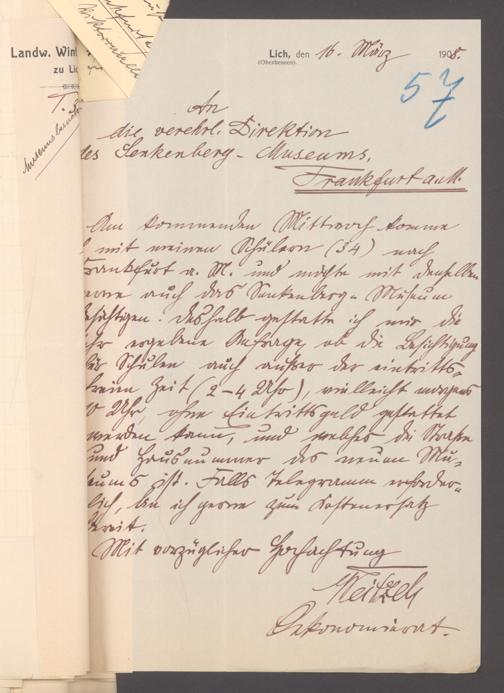 Landw. Win
zu Lic
Lich, den 16. März 1908.
(Oberhessen).
57
An
die verehrl. Direktion
des Senkenberg-Museums.
Frankfurt a. M.
Am kommenden Mittwoch komme
mit meinen Schülern (34) nach
Frankfurt a. M. und möchte mit denselben
gerne auch das Senkenberg-Museum
besichtigen. Deshalb gestatte ich mir die
sehr ergebene Anfrage, ob die Besichtigung
für Schulen auch außer der eintritts-
freien Zeit (2-4 Uhr), vielleicht morgens
10 Uhr, ohne Eintrittsgeld gestattet
werden kann, und welches die Straße
und Hausnummer des neuen Mu-
seums ist. Falls Telegramm erforder-
lich, bin ich gerne zum Kostenersatz
bereit.
Mit vorzüglicher Hochachtung
Oekonomierat.